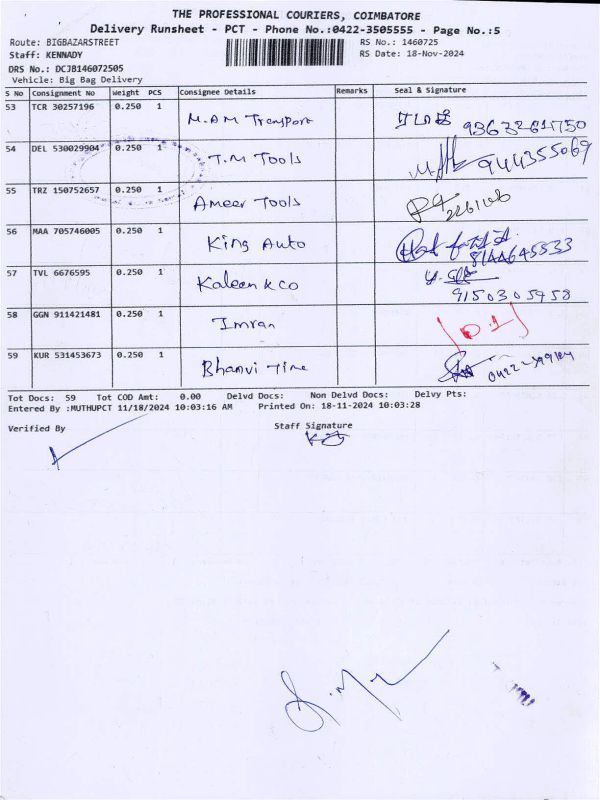 THE PROFESSIONAL COURIERS, COIMBATORE
Delivery Runsheet - PCT - Phone No.:0422-3505555 - Page No.:5
Route: BIGBAZARSTREET RS No.: 1460725
Staff: KENNADY RS Date: 18-Nov-2024
DRS No.: DCJB146072505
Vehicle: Big Bag Delivery
S No Consignment No Weight PCS Consignee Details Remarks Seal & Signature
53 TCR 30257196 0.250 1 M.A.M Transport
54 DEL 530029904 0.250 1 T.M Tools 944355069
55 TRZ 150752657 0.250 1 Ameer Tools
56 MAA 705746005 0.250 1 King Auto 8144645533
57 TVL 6676595 0.250 1 Kaleen & co 9150305958
58 GGN 911421481 0.250 1 Imran
59 KUR 531453673 0.250 1 Bhanvi Time
Tot Docs: 59 Tot COD Amt: 0.00 Delvd Docs: Non Delvd Docs: Delvy Pts:
Entered By :MUTHUPCT 11/18/2024 10:03:16 AM Printed On: 18-11-2024 10:03:28
Verified By Staff Signature